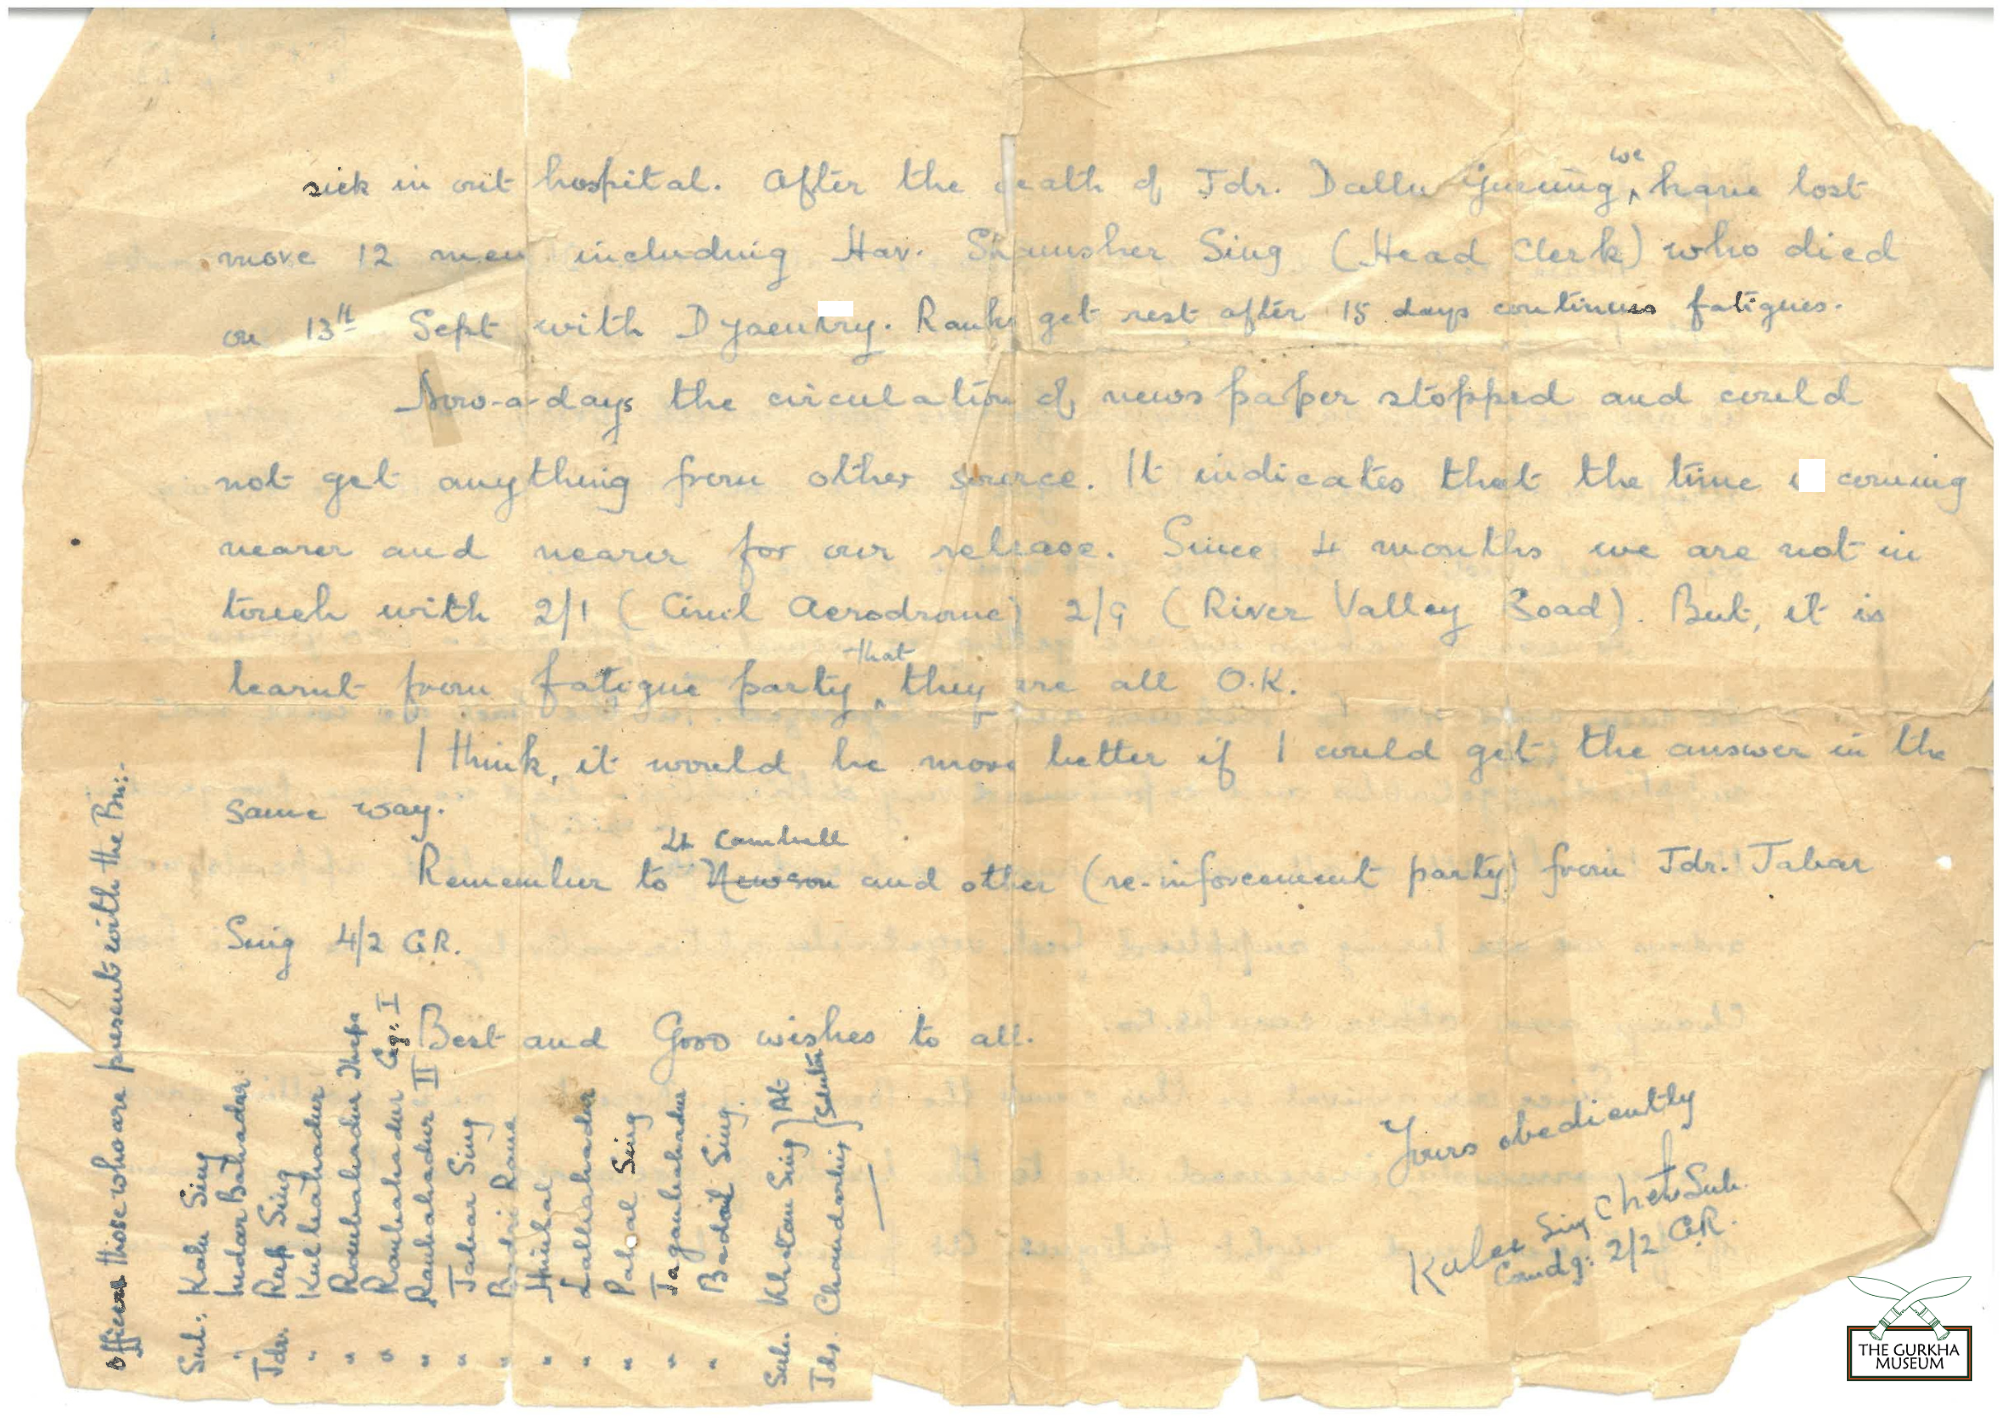 sick in out hospital. After the death of Jdr. Dallu Gurung, we have lost
more 12 men including Hav. Shamsher Sing (Head Clerk) who died
on 13th Sept with Dysentry. Ranks get rest after 15 days continus fatigues.
Now-a-days the circulation of news paper stopped and could
not get anything from other source. It indicates that the time coming
nearer and nearer for our release. Since 4 months we are not in
touch with 2/1 (Civil Aerodrome) 2/9 (River Valley Road). But, it is
learnt from fatigue party that they are all O.K.
I think, it would be more better if I could get the answer in the
same way.
Remember to Newson Lt Cambell and other (re-inforcement party) from Jdr. Jabar
Sing 4/2 GR.
Best and Good wishes to all.
Yours obediently
Kalu Sing Sub.
Comdg: 2/2 GR.
Officers those who are present with the Bn:-
Sub. Kalu Sing
" Indar Bahadur
Jdr. Rup Sing
" Kulbahadur
" Rambahadur Thapa
" Ranbahadur Gg: I
" Ranbahadur II
" Jabar Sing
" Badri Rana
" Hiralal
" Lalbahadur
" Pahal Sing
" Jaganbahadur
" Badal Sing.
Sub. Khatau Sing } At
Jdr. Chandarbir } Seletar
THE GURKHA
MUSEUM